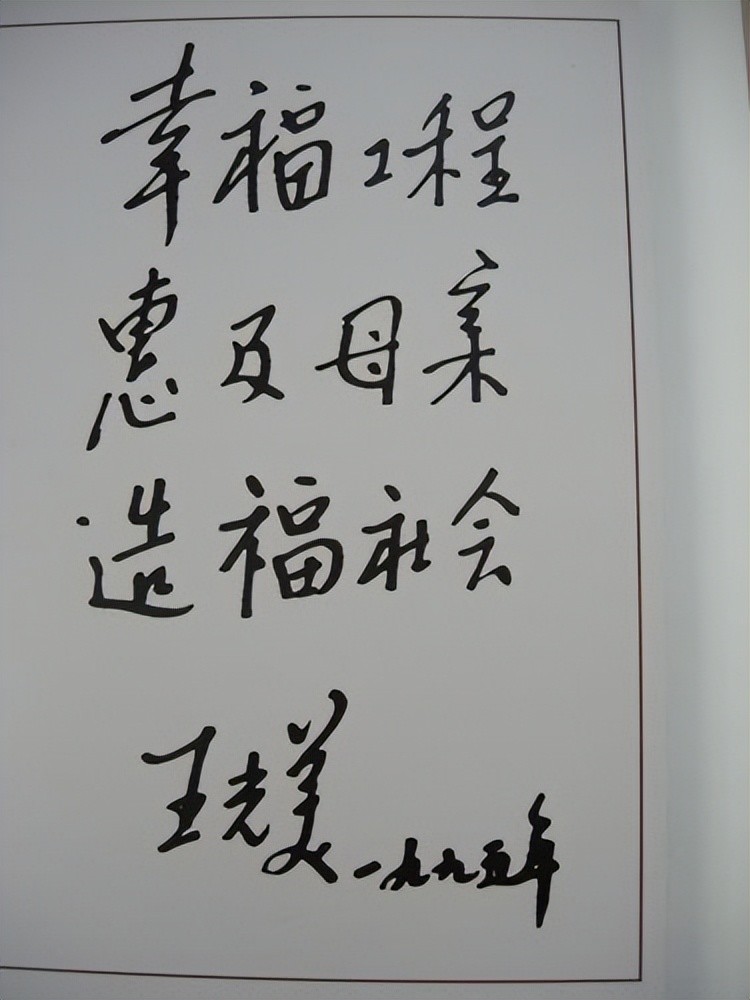 幸福工程
惠及母亲
造福社会
王光美
一九九五年